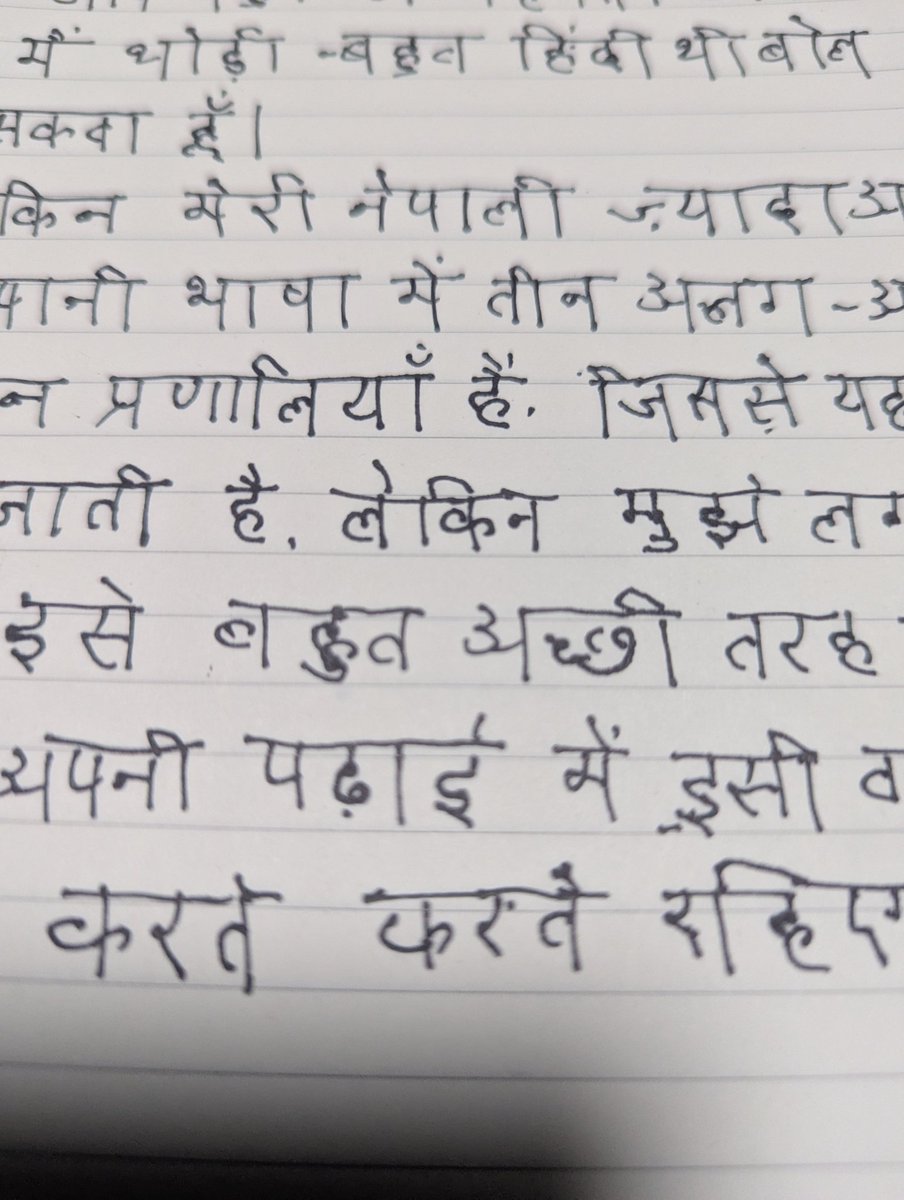 में थोड़ी-बहुत हिंदी भी बोल
सकता हूँ।
किन मेरी नेपाली ज़्यादा अ
पानी भाषा में तीन अलग-अ
न प्रणालियाँ हैं. जिससे यह
जाती है. लेकिन मुझे लग
इसे बहुत अच्छी तरह
अपनी पढ़ाई में इसी व
करते करते रहिए